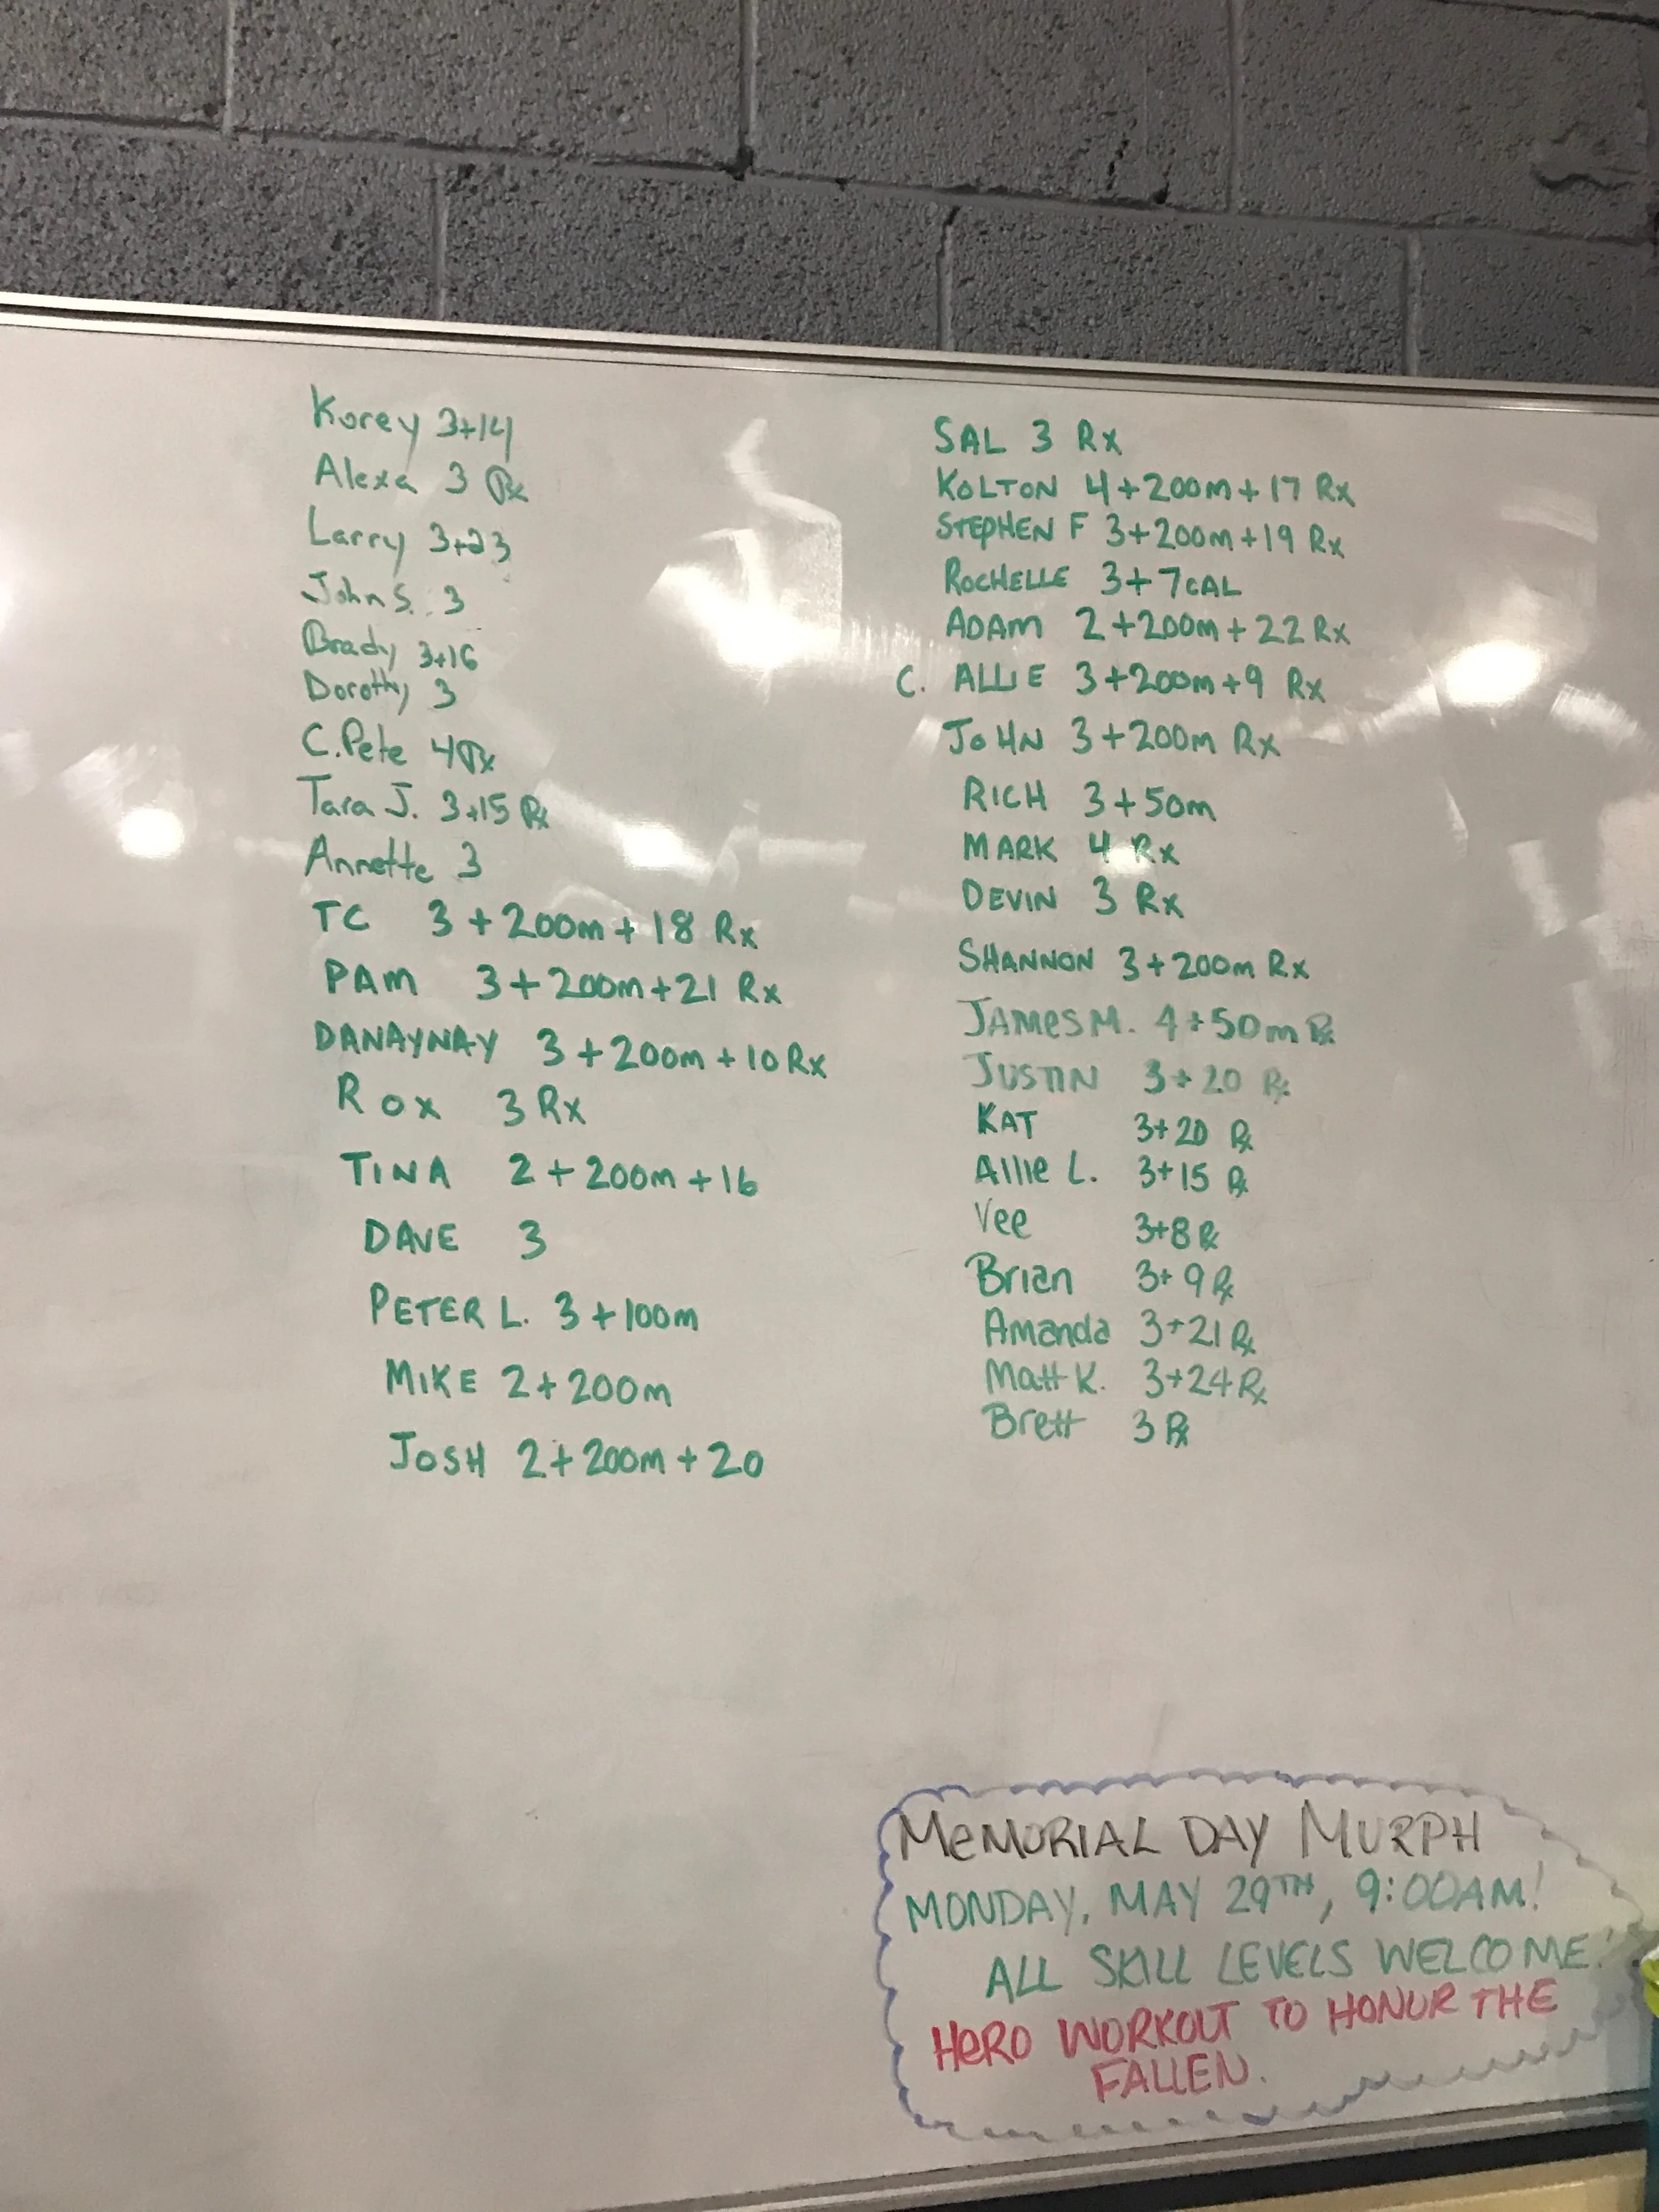 Korey 3+14
Alexa 3 Rx
Larry 3+23
John S. 3
Brady 3+16
Dorothy 3
C. Pete 4 Rx
Tara J. 3+15 Rx
Annette 3
TC 3 + 200m + 18 Rx
PAM 3 + 200m + 21 Rx
DANAYNAY 3 + 200m + 10 Rx
ROX 3 Rx
TINA 2 + 200m + 16
DAVE 3
PETER L. 3 + 100m
MIKE 2 + 200m
JOSH 2 + 200m + 20
SAL 3 Rx
KOLTON 4 + 200m + 17 Rx
STEPHEN F 3 + 200m + 19 Rx
ROCHELLE 3 + 7 CAL
ADAM 2 + 200m + 22 Rx
C. ALLIE 3 + 200m + 9 Rx
JOHN 3 + 200m Rx
RICH 3 + 50m
MARK 4 Rx
DEVIN 3 Rx
SHANNON 3 + 200m Rx
JAMES M. 4 + 50m Rx
JUSTIN 3 + 20 Rx
KAT 3+20 Rx
Allie L. 3+15 Rx
Vee 3+8 Rx
Brian 3+9 Rx
Amanda 3+21 Rx
Matt K. 3+24 Rx
Brett 3 Rx
MEMORIAL DAY MURPH
MONDAY, MAY 29TH, 9:00AM!
ALL SKILL LEVELS WELCOME!
HERO WORKOUT TO HONOR THE
FALLEN.